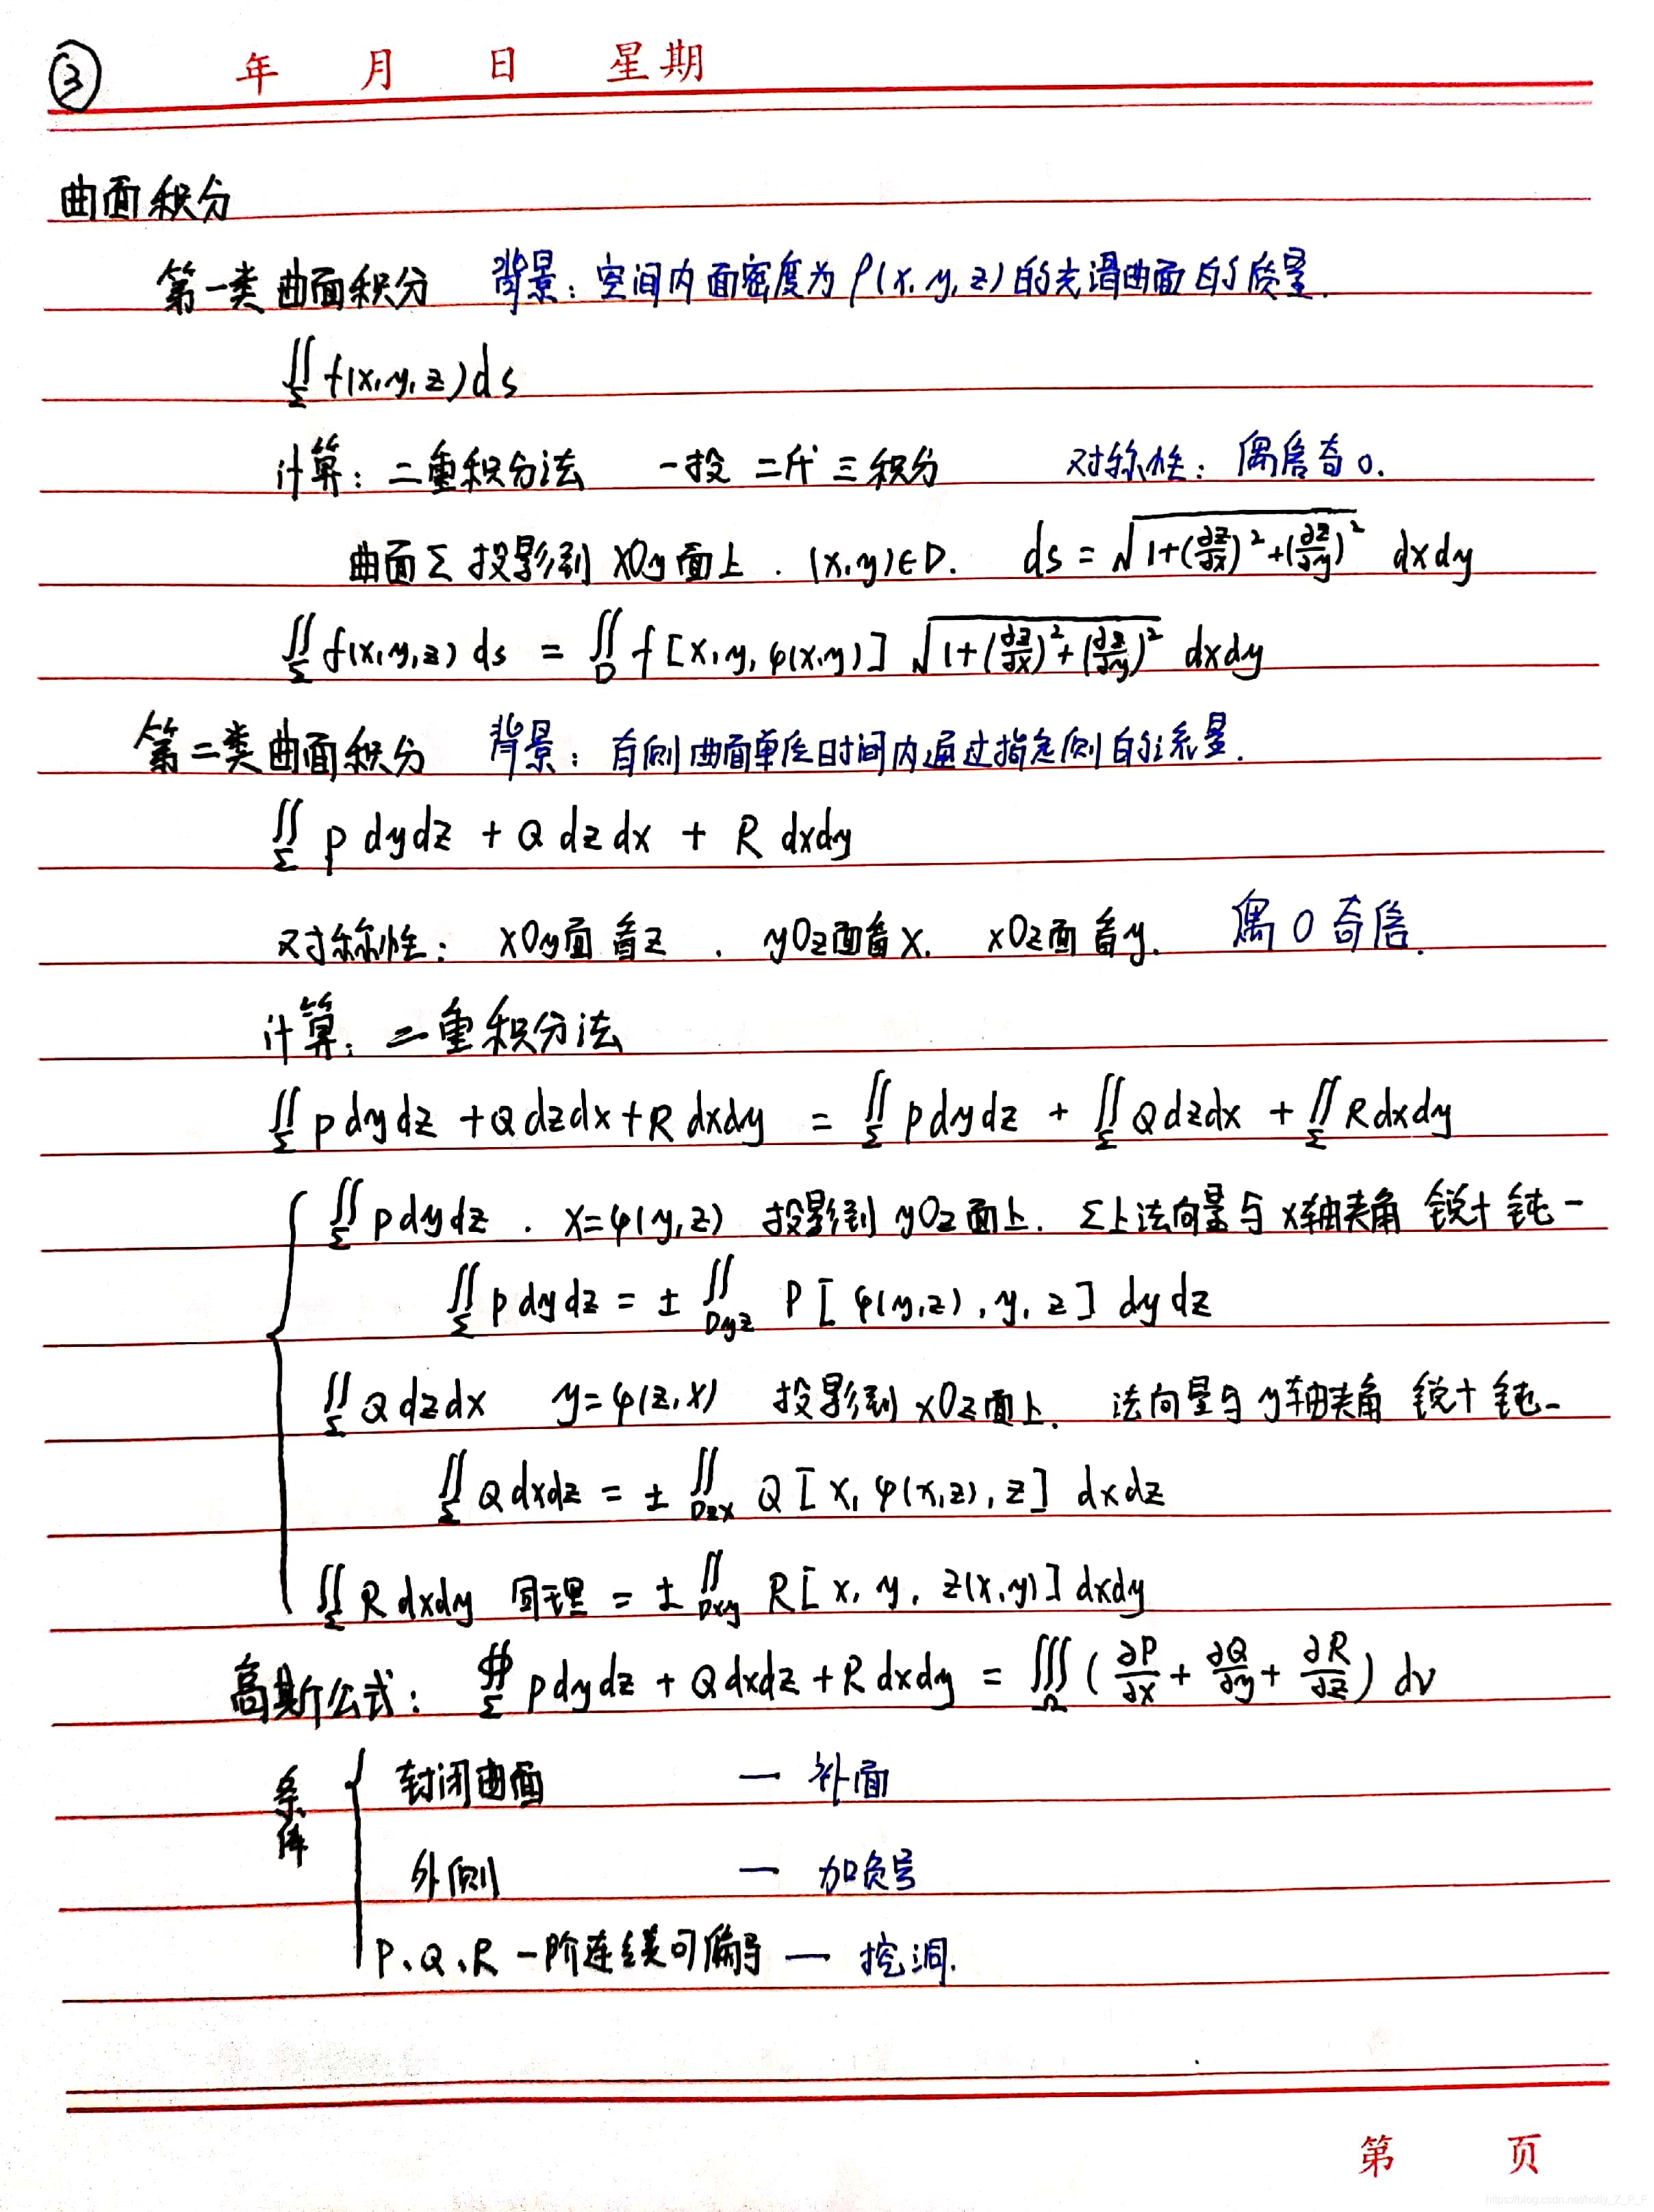 ③ 年 月 日 星期
曲面积分
第一类曲面积分 背景：空间内面密度为ρ(x,y,z)的光滑曲面的质量.
∬_Σ f(x,y,z)ds
计算：二重积分法 一投 二代 三积分 对称性：偶倍奇0.
曲面Σ投影到xOy面上．(x,y)∈D. ds = √(1+(∂z/∂x)²+(∂z/∂y)²) dxdy
∬_Σ f(x,y,z) ds = ∬_D f[x,y,φ(x,y)] √(1+(∂z/∂x)²+(∂z/∂y)²) dxdy
第二类曲面积分 背景：有侧曲面单位时间内通过指定侧的流量.
∬_Σ P dydz + Q dzdx + R dxdy
对称性：xOy面看z．yOz面看x. xOz面看y. 偶0奇倍.
计算：二重积分法
∬_Σ Pdydz + Qdzdx + Rdxdy = ∬_Σ Pdydz + ∬_Σ Qdzdx + ∬_Σ Rdxdy
∬_Σ Pdydz．x=φ(y,z) 投影到yOz面上．Σ上法向量与x轴夹角 锐+ 钝-
∬_Σ Pdydz = ± ∬_Dyz P[φ(y,z),y,z] dydz
∬_Σ Qdzdx y=φ(z,x) 投影到xOz面上．法向量与y轴夹角 锐+ 钝-
∬_Σ Qdxdz = ± ∬_Dzx Q[x,φ(x,z),z] dxdz
∬_Σ Rdxdy 同理 = ± ∬_Dxy R[x,y,z(x,y)] dxdy
高斯公式：∯_Σ Pdydz + Qdxdz + Rdxdy = ∭_Ω (∂P/∂x + ∂Q/∂y + ∂R/∂z) dv
条件 { 封闭曲面 — 补面
外侧 — 加负号
P、Q、R 一阶连续可偏导 — 挖洞.
第 页
https://blog.csdn.net/holly_Z_P_F